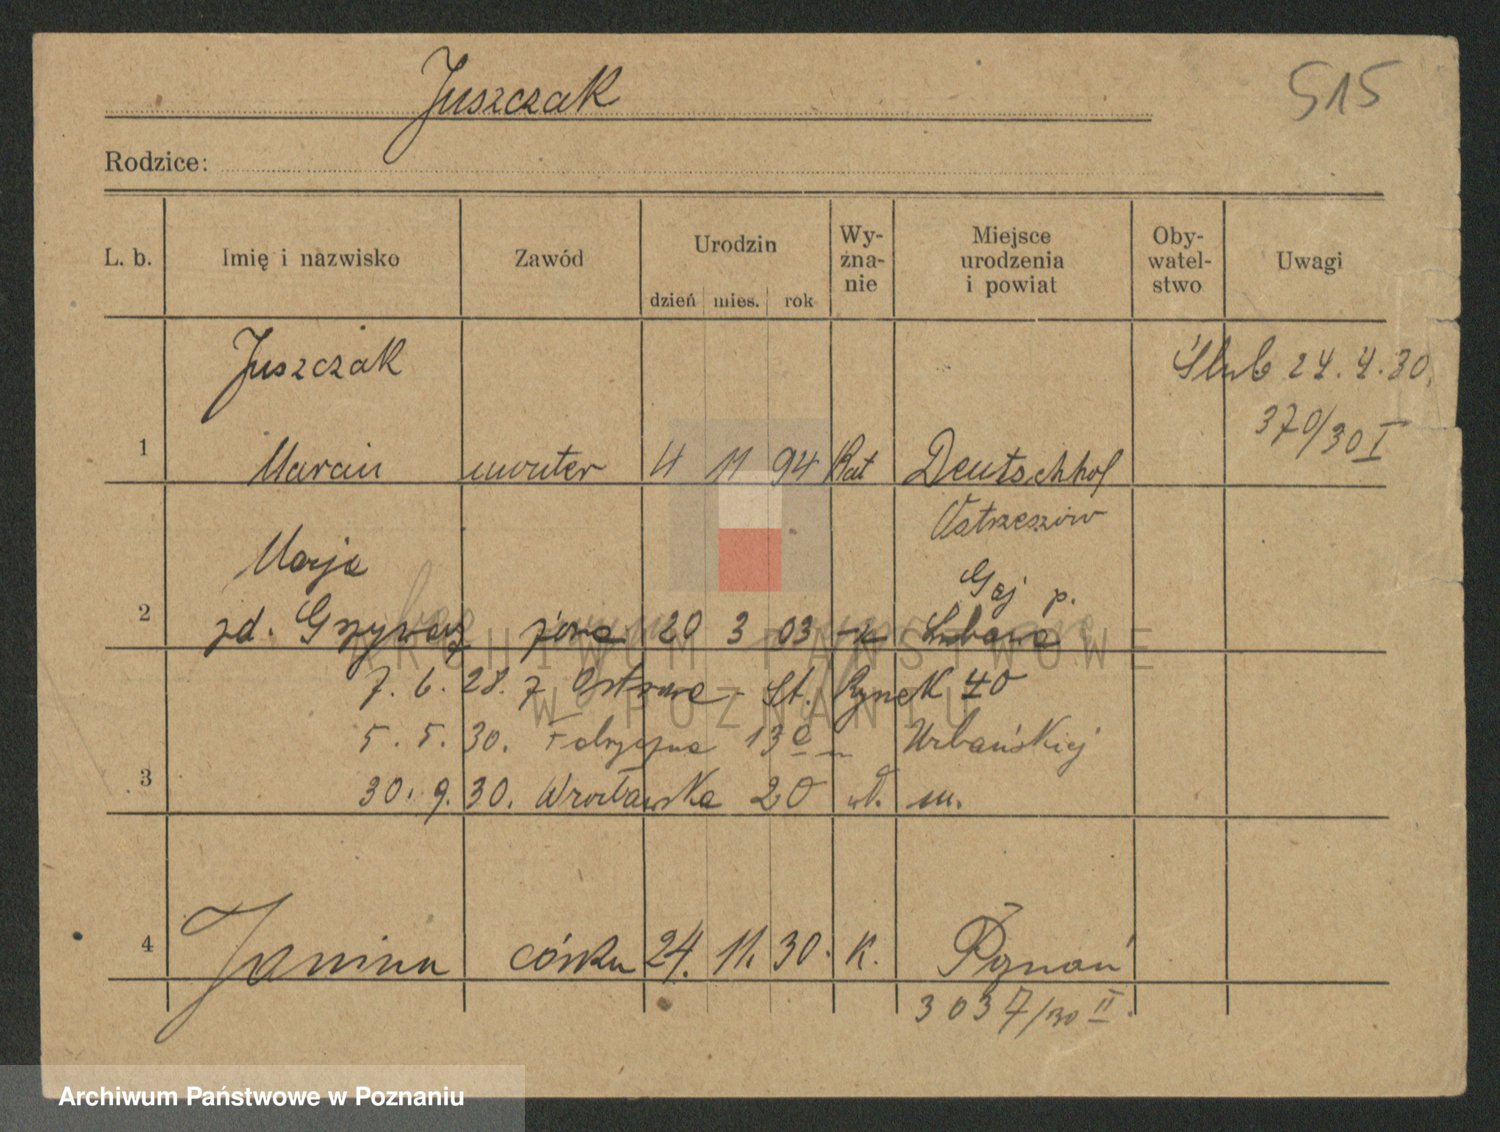 Juszczak
515
Rodzice:
L. b. Imię i nazwisko Zawód Urodzin Wy- zna- nie Miejsce urodzenia i powiat Oby- watel- stwo Uwagi
dzień mies. rok
Juszczak Ślub 24.4.30.
370/30 I
1 Marcin monter 4 11 94 Kat Deutschhof
Ostrzeszów
Marja Gaj p.
2 zd. żona 20 3 03 -"- Lubawa
7. 6. 28. z Ostrowa - St. Rynek 40
5. 5. 30. Fabryczna 13 Urbańskiej
3 30. 9. 30. Wrocławska 20 w. m.
4 Janina córka 24. 11. 30. K. Poznań
3037/30 II
ARCHIWUM PAŃSTWOWE
W POZNANIU
Archiwum Państwowe w Poznaniu